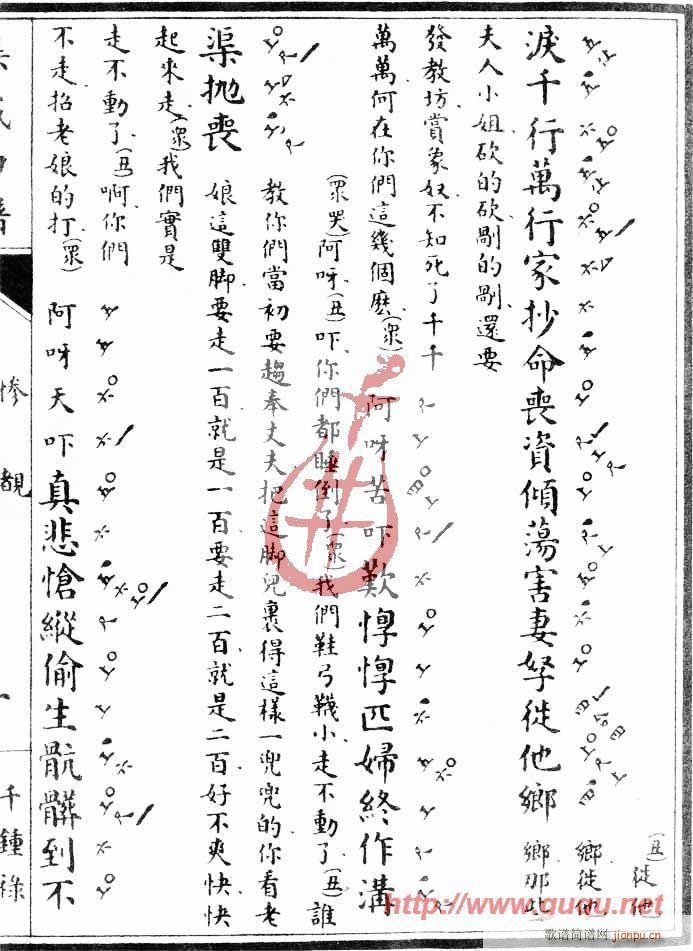 (丑)徙他
鄉徙他
鄉那些
淚千行萬行家抄命喪資傾蕩害妻孥徙他鄉
夫人小姐砍的砍剮的剮還要
發教坊賞象奴不知死了千千
萬萬何在你們這幾個麽(衆)阿呀苦吓歎惸惸匹婦終作溝
(衆哭)阿呀(丑)吓你們都睡倒了(衆)我們鞋弓襪小走不動了(丑)誰
教你們當初要趨奉丈夫把這脚兒裹得這樣一兜兜的你看老
渠抛喪 娘這雙脚要走一百就是一百要走二百就是二百好不爽快快
起來走(衆)我們實是
走不動了(丑)啊你們
不走招老娘的打(衆)阿呀天吓真悲愴縱偷生骯髒到不
慘覩
千鍾祿
http://www.guqu.net
歌谱简谱网
jianpu.cn